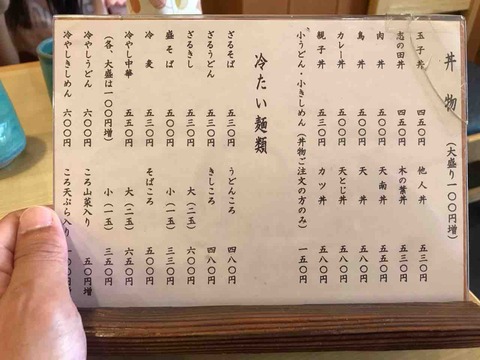 丼物 (大盛り一〇〇円増)
玉子丼 四五〇円 他人丼 五三〇円
志の田丼 四五〇円 木の葉丼 五三〇円
肉丼 五〇〇円 天南丼 五五〇円
鳥丼 五〇〇円 天丼 五五〇円
カレー丼 五〇〇円 天とじ丼 五八〇円
親子丼 五三〇円 カツ丼 五八〇円
小うどん・小きしめん (丼物ご注文の方のみ) 一五〇円
冷たい麺類
ざるそば 五三〇円 うどんころ 四八〇円
ざるうどん 五三〇円 きしころ 四八〇円
ざるきし 五三〇円 大(二玉) 六〇〇円
盛そば 五〇〇円 小(一玉) 三三〇円
冷麦 五三〇円 そばころ 五〇〇円
冷やし中華 五五〇円 大(二玉) 六五〇円
(各、大盛は一〇〇円増) 小(一玉) 三五〇円
冷やしうどん 六〇〇円 ころ山菜入り 五〇円増
冷やしきしめん 六〇〇円 ころ天ぷら入り